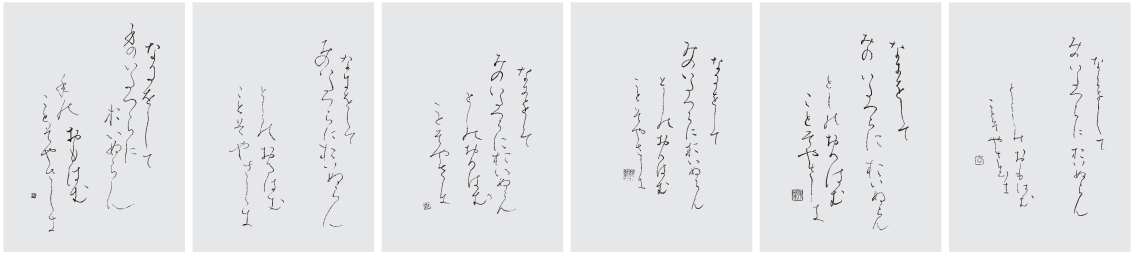 なにをして
身のいたつらに
おいぬらん
年のおもはむ
ことそやさしき
なにをして
みのいたつらにおいぬらん
としのおもはむ
ことそやさしき
なにをして
みのいたつらにおいぬらん
としのおもはむ
ことそやさしき
なにをして
みのいたつらにおいぬらん
としのおもはむ
ことそやさしき
なにをして
みのいたつらにおいぬらん
としのおもはむ
ことそやさしき
なにをして
みのいたつらにおいぬらん
としのおもはむ
ことそやさしき